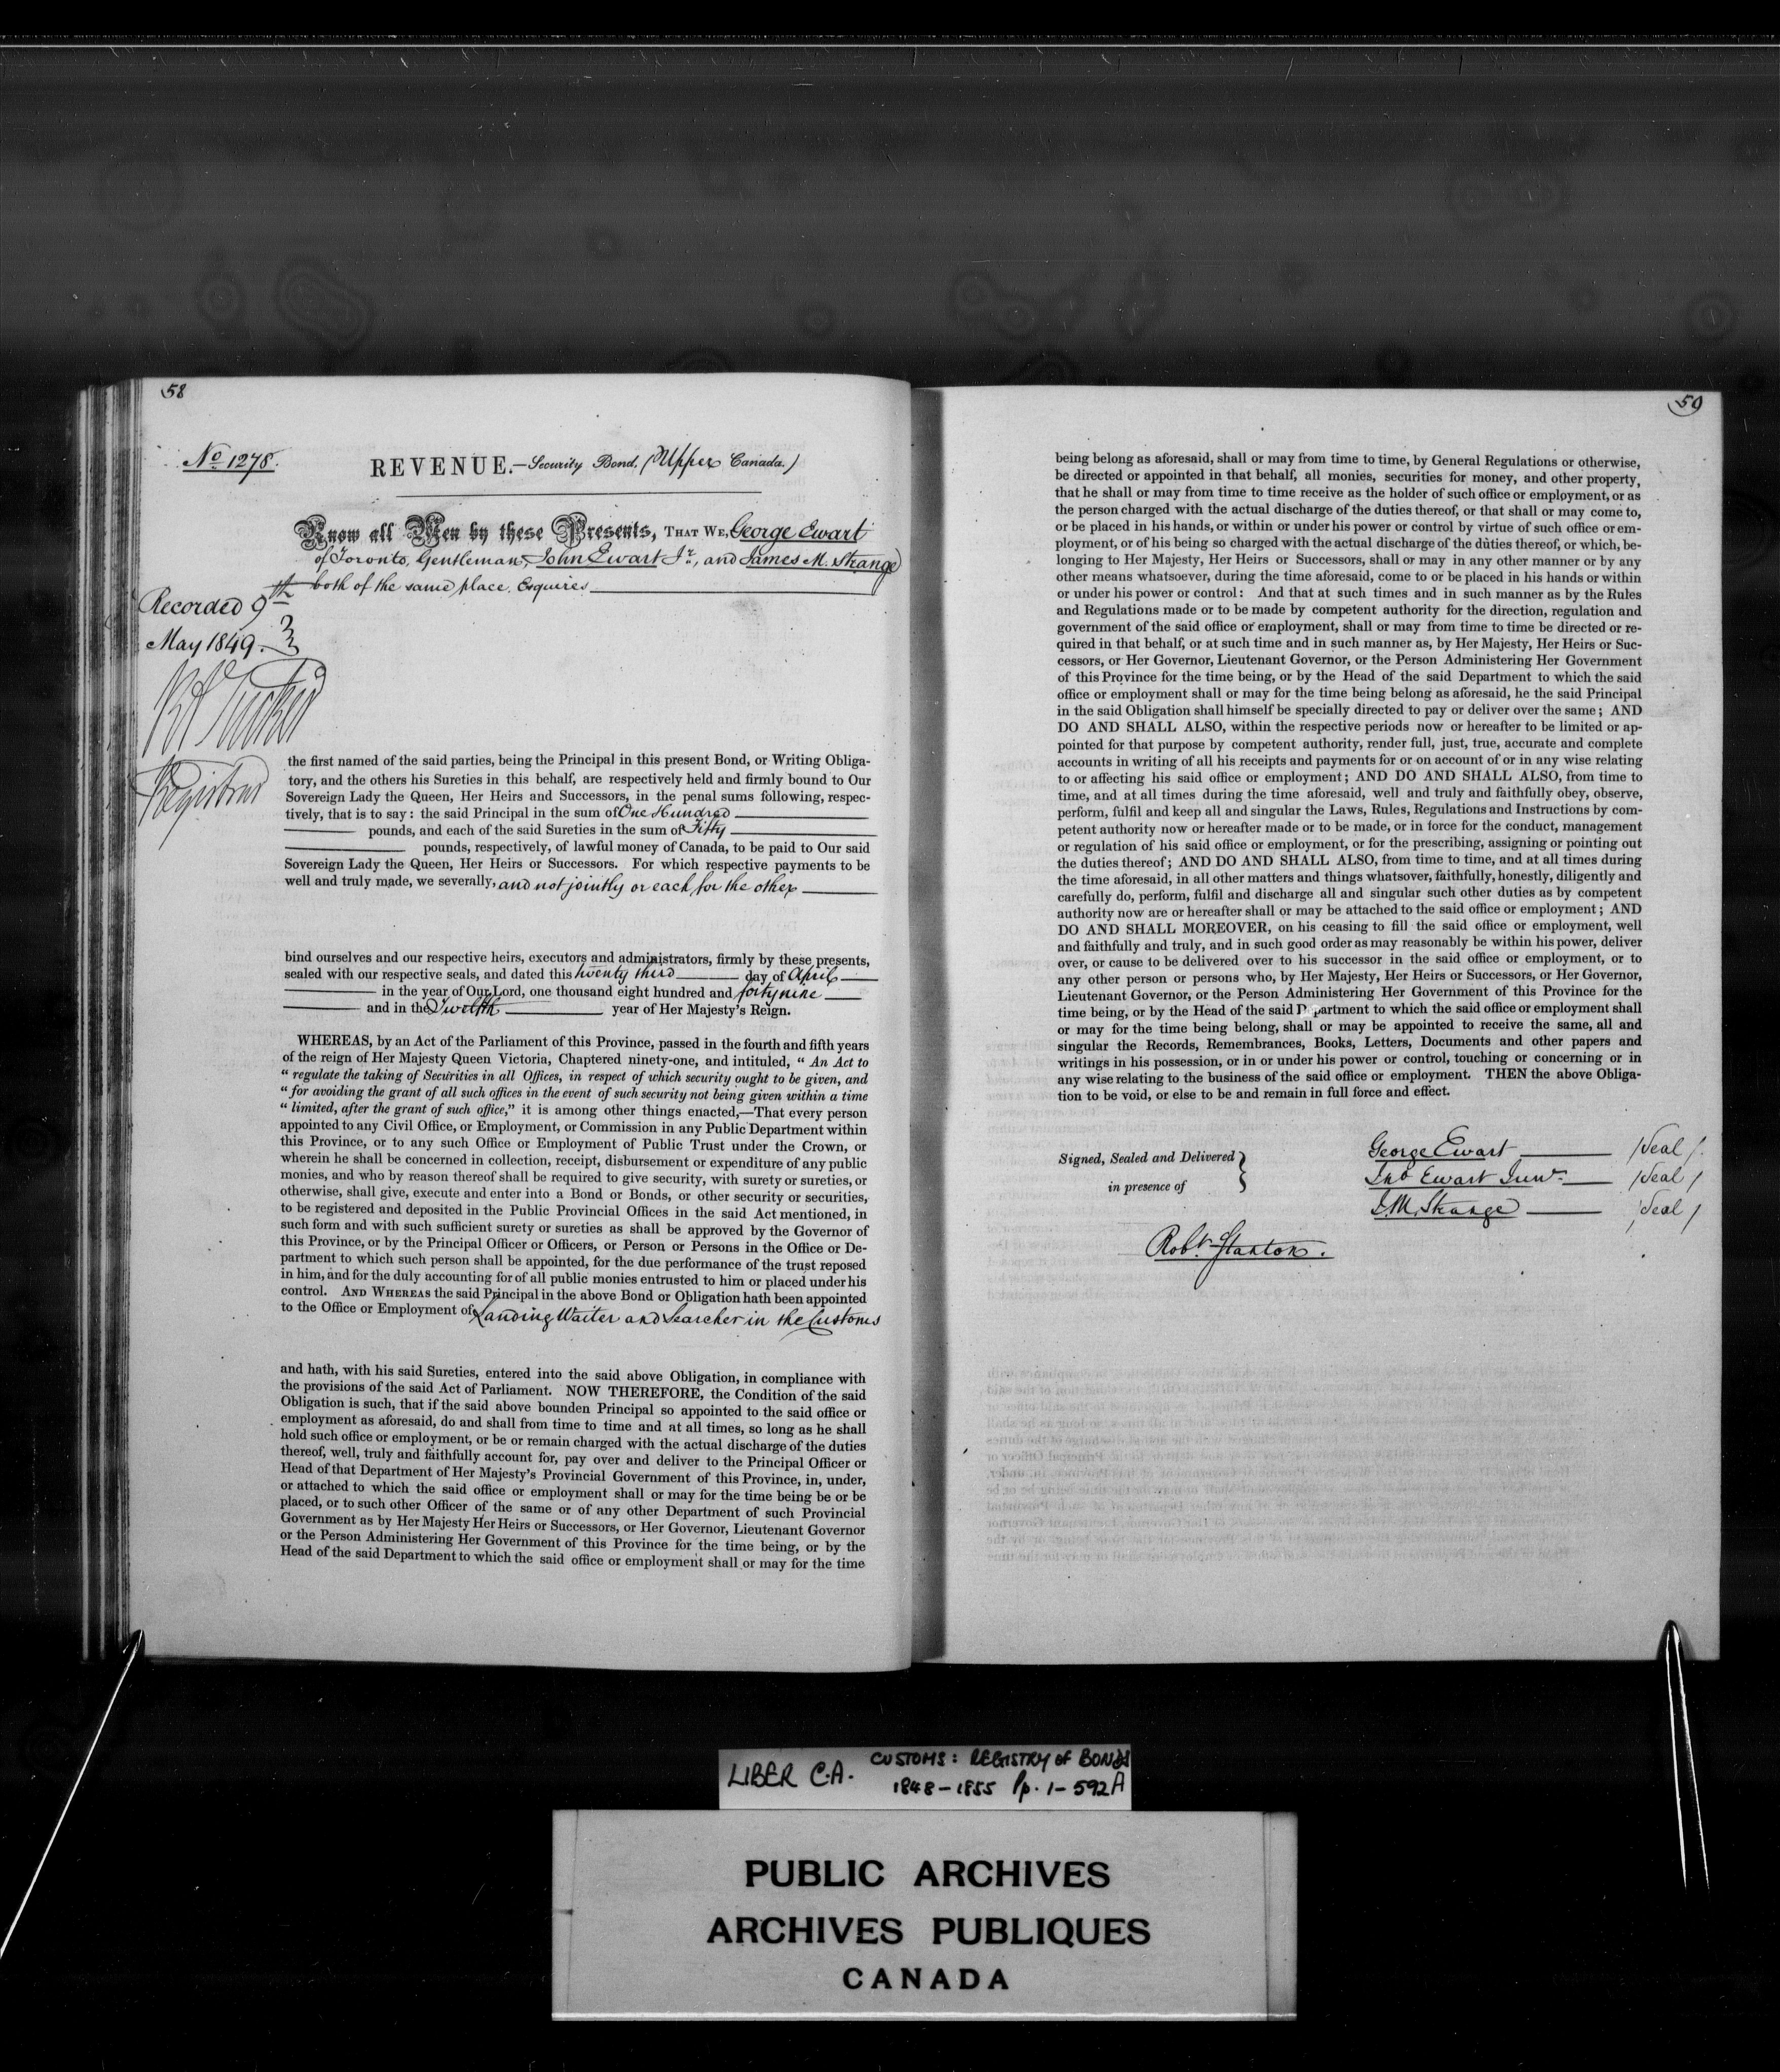 58
No 1278.
REVENUE.—Security Bond, (Upper Canada.)
Know all Men by these Presents, THAT WE, George Ewart
of Toronto, Gentleman, John Ewart Jr., and James M. Strange
both of the same place, Esquires
Recorded 9th
May 1849.
Registrar
the first named of the said parties, being the Principal in this present Bond, or Writing Obliga-
tory, and the others his Sureties in this behalf, are respectively held and firmly bound to Our
Sovereign Lady the Queen, Her Heirs and Successors, in the penal sums following, respec-
tively, that is to say: the said Principal in the sum of One Hundred
pounds, and each of the said Sureties in the sum of Fifty
pounds, respectively, of lawful money of Canada, to be paid to Our said
Sovereign Lady the Queen, Her Heirs or Successors. For which respective payments to be
well and truly made, we severally, and not jointly or each for the other
bind ourselves and our respective heirs, executors and administrators, firmly by these presents,
sealed with our respective seals, and dated this twenty third day of April
in the year of Our Lord, one thousand eight hundred and forty nine
and in the Twelfth year of Her Majesty's Reign.
WHEREAS, by an Act of the Parliament of this Province, passed in the fourth and fifth years
of the reign of Her Majesty Queen Victoria, Chaptered ninety-one, and intituled, " An Act to
" regulate the taking of Securities in all Offices, in respect of which security ought to be given, and
" for avoiding the grant of all such offices in the event of such security not being given within a time
" limited, after the grant of such office," it is among other things enacted,—That every person
appointed to any Civil Office, or Employment, or Commission in any Public Department within
this Province, or to any such Office or Employment of Public Trust under the Crown, or
wherein he shall be concerned in collection, receipt, disbursement or expenditure of any public
monies, and who by reason thereof shall be required to give security, with surety or sureties, or
otherwise, shall give, execute and enter into a Bond or Bonds, or other security or securities,
to be registered and deposited in the Public Provincial Offices in the said Act mentioned, in
such form and with such sufficient surety or sureties as shall be approved by the Governor of
this Province, or by the Principal Officer or Officers, or Person or Persons in the Office or De-
partment to which such person shall be appointed, for the due performance of the trust reposed
in him, and for the duly accounting for of all public monies entrusted to him or placed under his
control. AND WHEREAS the said Principal in the above Bond or Obligation hath been appointed
to the Office or Employment of Landing Waiter and Searcher in the Customs
and hath, with his said Sureties, entered into the said above Obligation, in compliance with
the provisions of the said Act of Parliament. NOW THEREFORE, the Condition of the said
Obligation is such, that if the said above bounden Principal so appointed to the said office or
employment as aforesaid, do and shall from time to time and at all times, so long as he shall
hold such office or employment, or be or remain charged with the actual discharge of the duties
thereof, well, truly and faithfully account for, pay over and deliver to the Principal Officer or
Head of that Department of Her Majesty's Provincial Government of this Province, in, under,
or attached to which the said office or employment shall or may for the time being be or be
placed, or to such other Officer of the same or of any other Department of such Provincial
Government as by Her Majesty Her Heirs or Successors, or Her Governor, Lieutenant Governor
or the Person Administering Her Government of this Province for the time being, or by the
Head of the said Department to which the said office or employment shall or may for the time
59
being belong as aforesaid, shall or may from time to time, by General Regulations or otherwise,
be directed or appointed in that behalf, all monies, securities for money, and other property,
that he shall or may from time to time receive as the holder of such office or employment, or as
the person charged with the actual discharge of the duties thereof, or that shall or may come to,
or be placed in his hands, or within or under his power or control by virtue of such office or em-
ployment, or of his being so charged with the actual discharge of the duties thereof, or which, be-
longing to Her Majesty, Her Heirs or Successors, shall or may in any other manner or by any
other means whatsoever, during the time aforesaid, come to or be placed in his hands or within
or under his power or control: And that at such times and in such manner as by the Rules
and Regulations made or to be made by competent authority for the direction, regulation and
government of the said office or employment, shall or may from time to time be directed or re-
quired in that behalf, or at such time and in such manner as, by Her Majesty, Her Heirs or Suc-
cessors, or Her Governor, Lieutenant Governor, or the Person Administering Her Government
of this Province for the time being, or by the Head of the said Department to which the said
office or employment shall or may for the time being belong as aforesaid, he the said Principal
in the said Obligation shall himself be specially directed to pay or deliver over the same; AND
DO AND SHALL ALSO, within the respective periods now or hereafter to be limited or ap-
pointed for that purpose by competent authority, render full, just, true, accurate and complete
accounts in writing of all his receipts and payments for or on account of or in any wise relating
to or affecting his said office or employment; AND DO AND SHALL ALSO, from time to
time, and at all times during the time aforesaid, well and truly and faithfully obey, observe,
perform, fulfil and keep all and singular the Laws, Rules, Regulations and Instructions by com-
petent authority now or hereafter made or to be made, or in force for the conduct, management
or regulation of his said office or employment, or for the prescribing, assigning or pointing out
the duties thereof; AND DO AND SHALL ALSO, from time to time, and at all times during
the time aforesaid, in all other matters and things whatsover, faithfully, honestly, diligently and
carefully do, perform, fulfil and discharge all and singular such other duties as by competent
authority now are or hereafter shall or may be attached to the said office or employment; AND
DO AND SHALL MOREOVER, on his ceasing to fill the said office or employment, well
and faithfully and truly, and in such good order as may reasonably be within his power, deliver
over, or cause to be delivered over to his successor in the said office or employment, or to
any other person or persons who, by Her Majesty, Her Heirs or Successors, or Her Governor,
Lieutenant Governor, or the Person Administering Her Government of this Province for the
time being, or by the Head of the said Department to which the said office or employment shall
or may for the time being belong, shall or may be appointed to receive the same, all and
singular the Records, Remembrances, Books, Letters, Documents and other papers and
writings in his possession, or in or under his power or control, touching or concerning or in
any wise relating to the business of the said office or employment. THEN the above Obliga-
tion to be void, or else to be and remain in full force and effect.
Signed, Sealed and Delivered
in presence of
George Ewart /Seal/
Jno Ewart Junr. /Seal/
J.M. Strange /Seal/
Robt. Stanton.
LIBER C.A. CUSTOMS: REGISTRY OF BONDS
1848-1855 Pp. 1-592A
PUBLIC ARCHIVES
ARCHIVES PUBLIQUES
CANADA